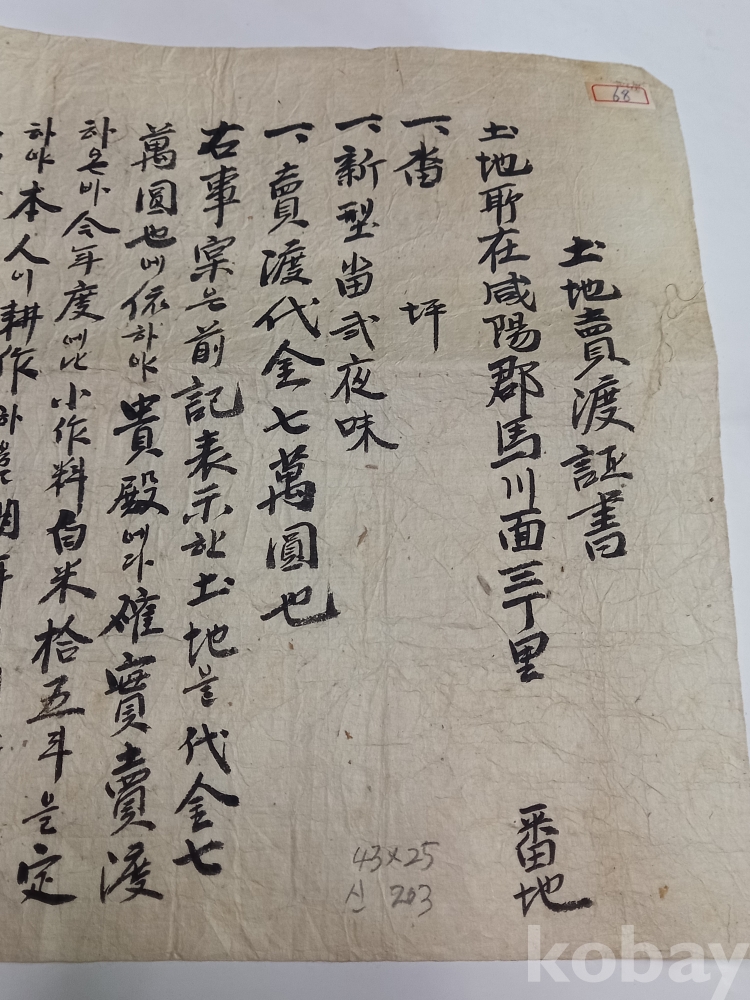 68
土地賣渡証書
土地所在咸陽郡馬川面三丁里 番地
一、畓 坪
一、新型畓弐夜味
一、賣渡代金七萬圓也
右事案은前記表示한土地을代金七
萬圓也에依하야貴殿에다確實賣渡
하온바今年度에난小作料白米拾五斗을定
하야本人이耕作하
43×25
신 203
kobay